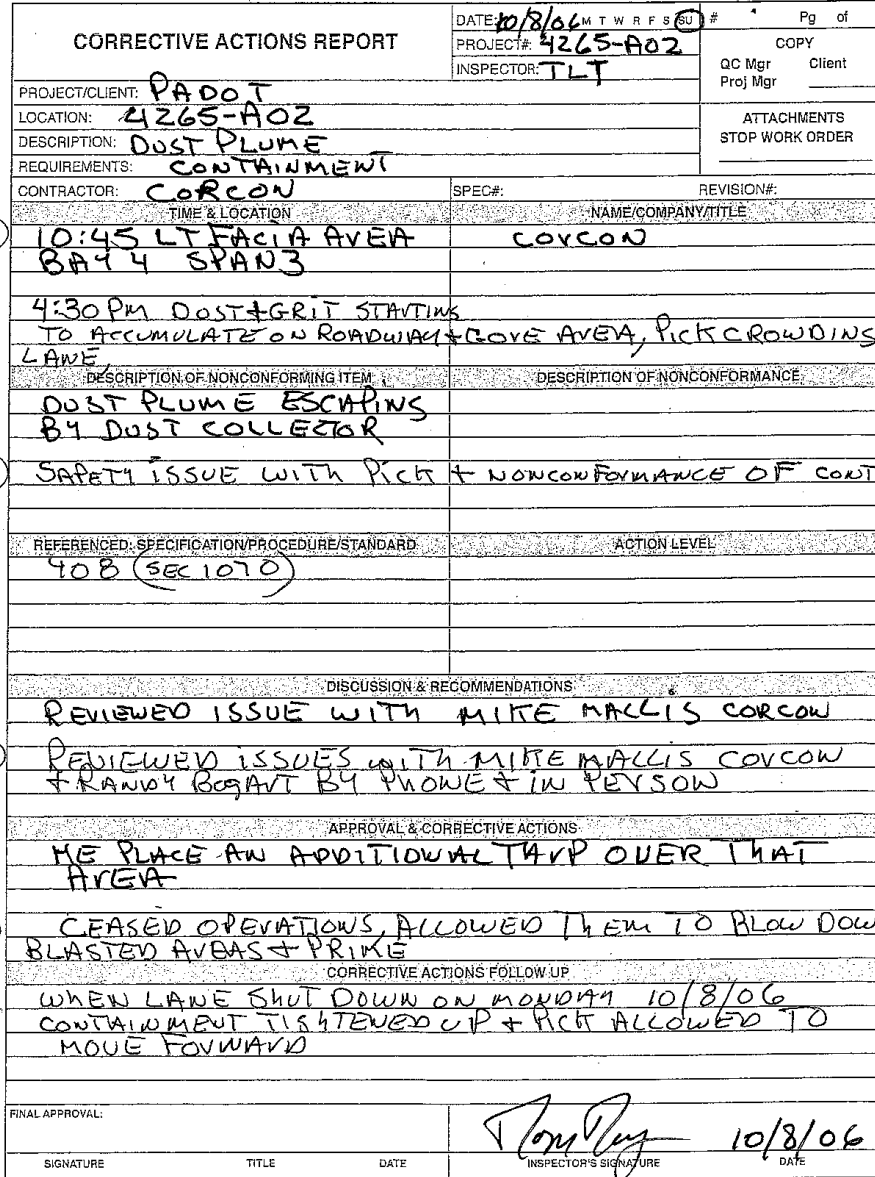 CORRECTIVE ACTIONS REPORT
DATE: 10/8/06 M T W R F S SU # Pg of
PROJECT#: 4265-A02
INSPECTOR: TLT
COPY
QC Mgr Client
Proj Mgr
PROJECT/CLIENT: PADOT
LOCATION: 4265-A02
DESCRIPTION: DUST PLUME
REQUIREMENTS: CONTAINMENT
ATTACHMENTS
STOP WORK ORDER
CONTRACTOR: CORCON SPEC#: REVISION#:
TIME & LOCATION NAME/COMPANY/TITLE
10:45 LT FACIA AREA CORCON
BAY 4 SPAN 3
4:30 PM DUST + GRIT STARTING
TO ACCUMULATE ON ROADWAY + GORE AREA, PICK CROWDING
LANE,
DESCRIPTION OF NONCONFORMING ITEM DESCRIPTION OF NONCONFORMANCE
DUST PLUME ESCAPING
BY DUST COLLECTOR
SAFETY ISSUE WITH PICK + NONCONFORMANCE OF CONT
REFERENCED: SPECIFICATION/PROCEDURE/STANDARD ACTION LEVEL
408 (SEC 1070)
DISCUSSION & RECOMMENDATIONS
REVIEWED ISSUE WITH MIKE MALLIS CORCON
REVIEWED ISSUES WITH MIKE MALLIS CORCON
+ RANDY BOGART BY PHONE + IN PERSON
APPROVAL & CORRECTIVE ACTIONS
HE PLACE AN ADDITIONAL TARP OVER THAT
AREA
CEASED OPERATIONS, ALLOWED THEM TO BLOW DOW
BLASTED AREAS + PRIME
CORRECTIVE ACTIONS FOLLOW UP
WHEN LANE SHUT DOWN ON MONDAY 10/8/06
CONTAINMENT TIGHTENED UP + PICK ALLOWED TO
MOVE FORWARD
FINAL APPROVAL:
10/8/06
SIGNATURE TITLE DATE INSPECTOR'S SIGNATURE DATE